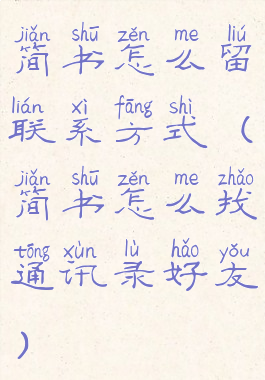 jiǎn shū zěn me liú
简书怎么留
lián xì fāng shì
联系方式（
jiǎn shū zěn me zhǎo
简书怎么找
tōng xùn lù hǎo yǒu
通讯录好友
）